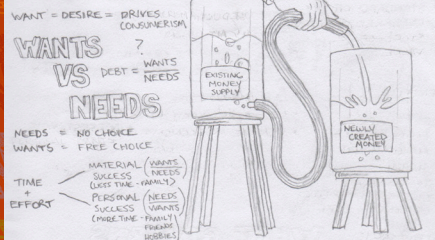 WANT = DESIRE = DRIVES
CONSUMERISM
WANTS
?
VS
DEBT = WANTS
NEEDS
NEEDS
NEEDS = NO CHOICE
WANTS = FREE CHOICE
TIME
+
EFFORT
MATERIAL (WANTS
SUCCESS NEEDS)
(LESS TIME - FAMILY)
PERSONAL (NEEDS
SUCCESS WANTS)
(MORE TIME - FAMILY
FRIENDS
HOBBIES)
EXISTING
MONEY
SUPPLY
NEWLY
CREATED
MONEY